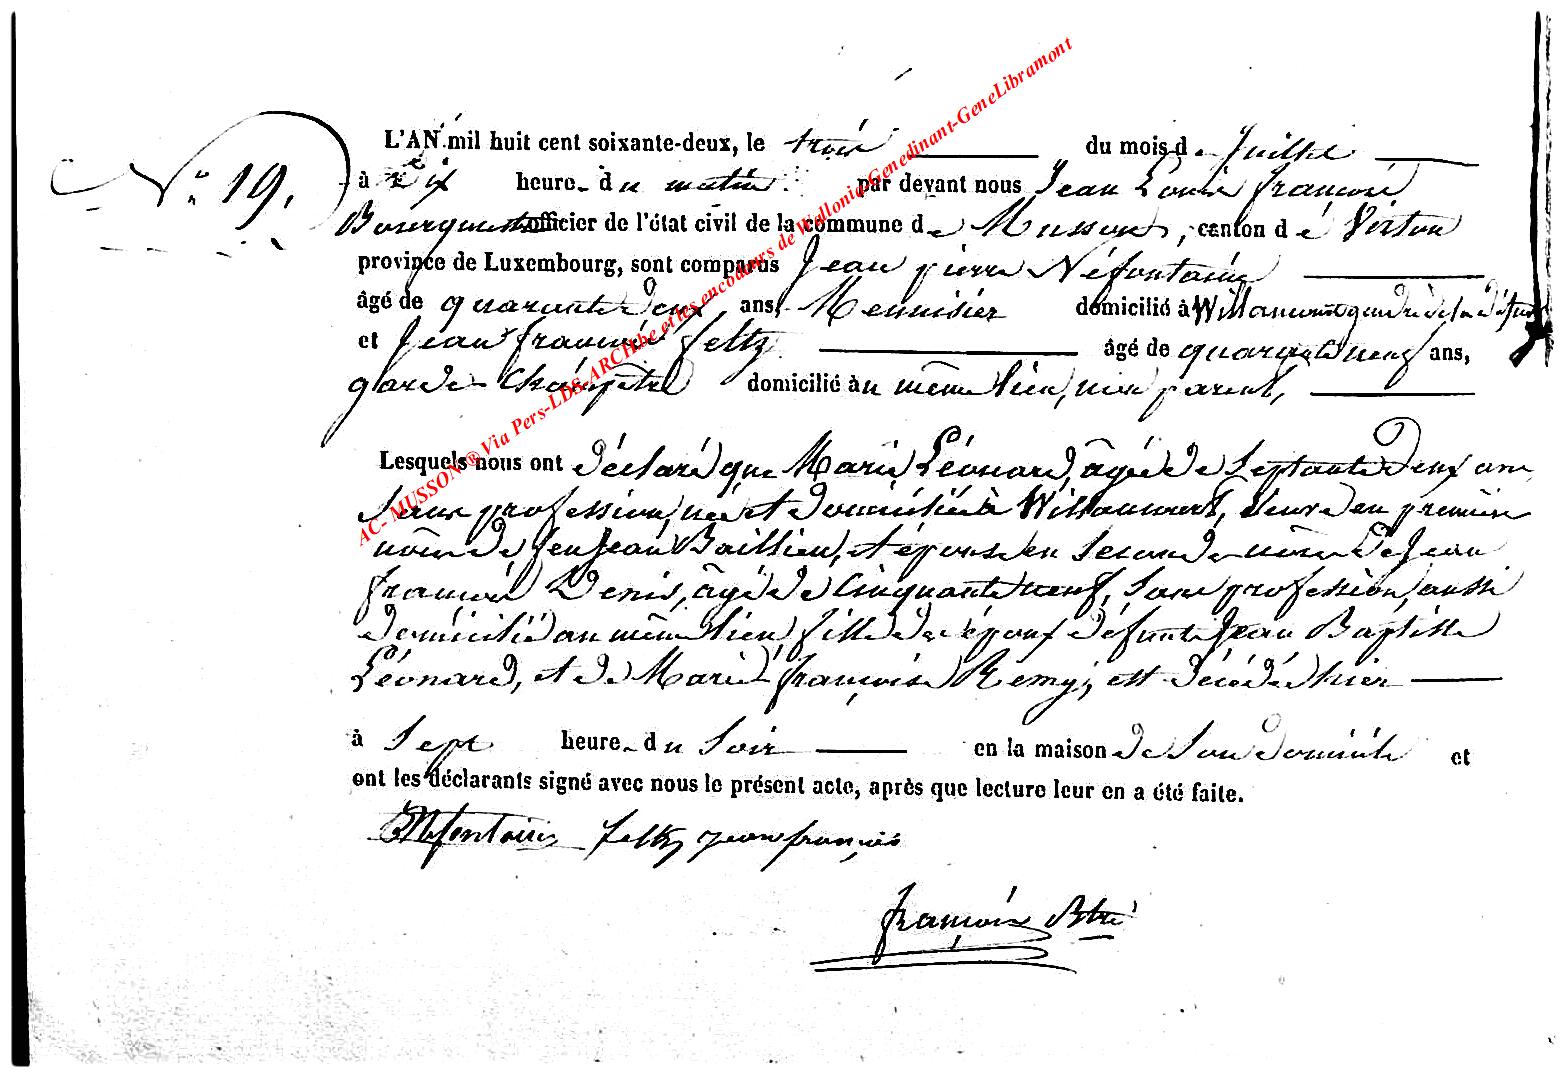 N° 19.
L'AN mil huit cent soixante-deux, le trois du mois de Juillet
à dix heure du matin par devant nous Jean Louis François
Bourguemestre officier de l'état civil de la commune de Musson, canton de Virton
province de Luxembourg, sont comparus Jean pierre Néfontaine
âgé de quarante deux ans, Menuisier domicilié à Willancourt gendre de la défunte
et Jean françois feltz âgé de quarante neuf ans,
garde Champêtre domicilié au même lieu, non parent,
Lesquels nous ont déclaré que Marie Léonard, âgée de Septante deux ans
Sans profession, née et domiciliée à Willancourt, Veuve en premiere
nôce de feu Jean Baillieu, et épouse en Seconde nôce de Jean
françois Denis, âgé de Cinquante neuf, Sans profession, aussi
domicilié au même lieu, fille des époux défunts Jean Baptiste
Léonard, et de Marie françoise Remy, est décédée hier
à Sept heure du Soir en la maison de Son domicile et
ont les déclarants signé avec nous le présent acte, après que lecture leur en a été faite.
Néfontaine feltz jean françois
françois
AC- MUSSON ® Via Pers-LDS-ARCH.be et les encodeurs de Wallonia-Genedinant-GeneLibramont